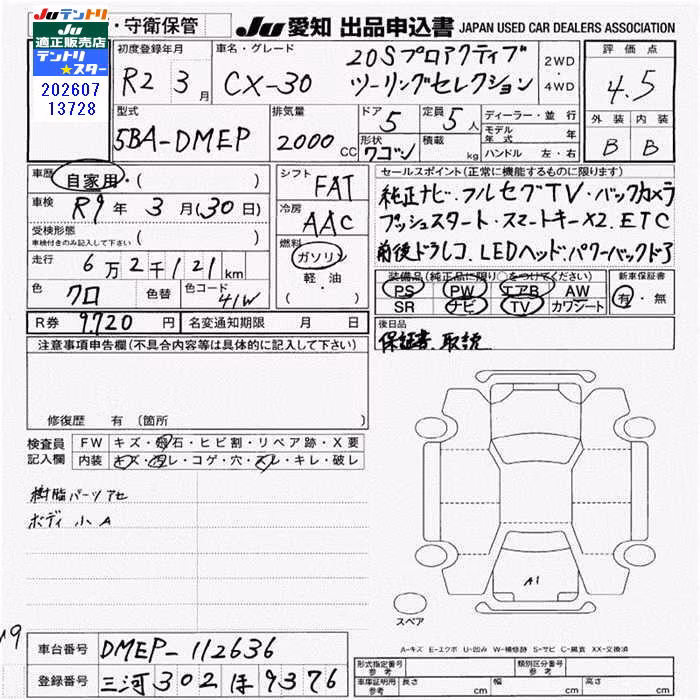 Juテントリ
適正販売店
テントリ
★スター
202607
13728
・守衛保管
Ju 愛知 出品申込書 JAPAN USED CAR DEALERS ASSOCIATION
初度登録年月 車名・グレード 評価点
R2 3月 CX-30 20Sプロアクティブ ツーリングセレクション 2WD・4WD 4.5
型式 排気量 ドア 定員 ディーラー・並行 外装 内装
5BA-DMEP 2000CC 5 5人 モデル年式 年 B B
形状 ワゴン 積載 kg ハンドル 左・右
車歴 自家用・( ) シフト FAT セールスポイント(正常に機能するものに限ります)
車検 R9年 3月(30日) 冷房 AAC 純正ナビ・フルセグTV・バックカメラ
受検形態 車検付きのみ記入して下さい ( ) プッシュスタート・スマートキー×2.ETC
燃料 ガソリン 軽・油 ( ) 前後ドラレコ.LEDヘッド・パワーバックドア
走行 6万2千121km 装備品(純正品に限り○をつけてください) 新車保証書
色 クロ 色替 色コード 41W PS PW エアB AW 有・無
SR ナビ TV カワシート
R券 9,720円 名変通知期限 月 日 後日品
保証書.取説
注意事項申告欄(不具合内容等は具体的に記入して下さい)
修復歴 有(箇所 )
検査員記入欄 FW キズ・飛石・ヒビ割・リペア跡・X要
内装 キズ・汚レ・コゲ・穴・スレ・キレ・破レ
樹脂パーツアセ
ボディ小A
A1
スペア
19
A-キズ E-エクボ U-凹み W-補修跡 S-サビ C-腐食 XX-交換済
車台番号 DMEP-112636
登録番号 三河302ほ9376
形式指定番号 参考 類別区分番号 参考
車庫証明用 参考 長さ cm 幅 cm 高さ cm